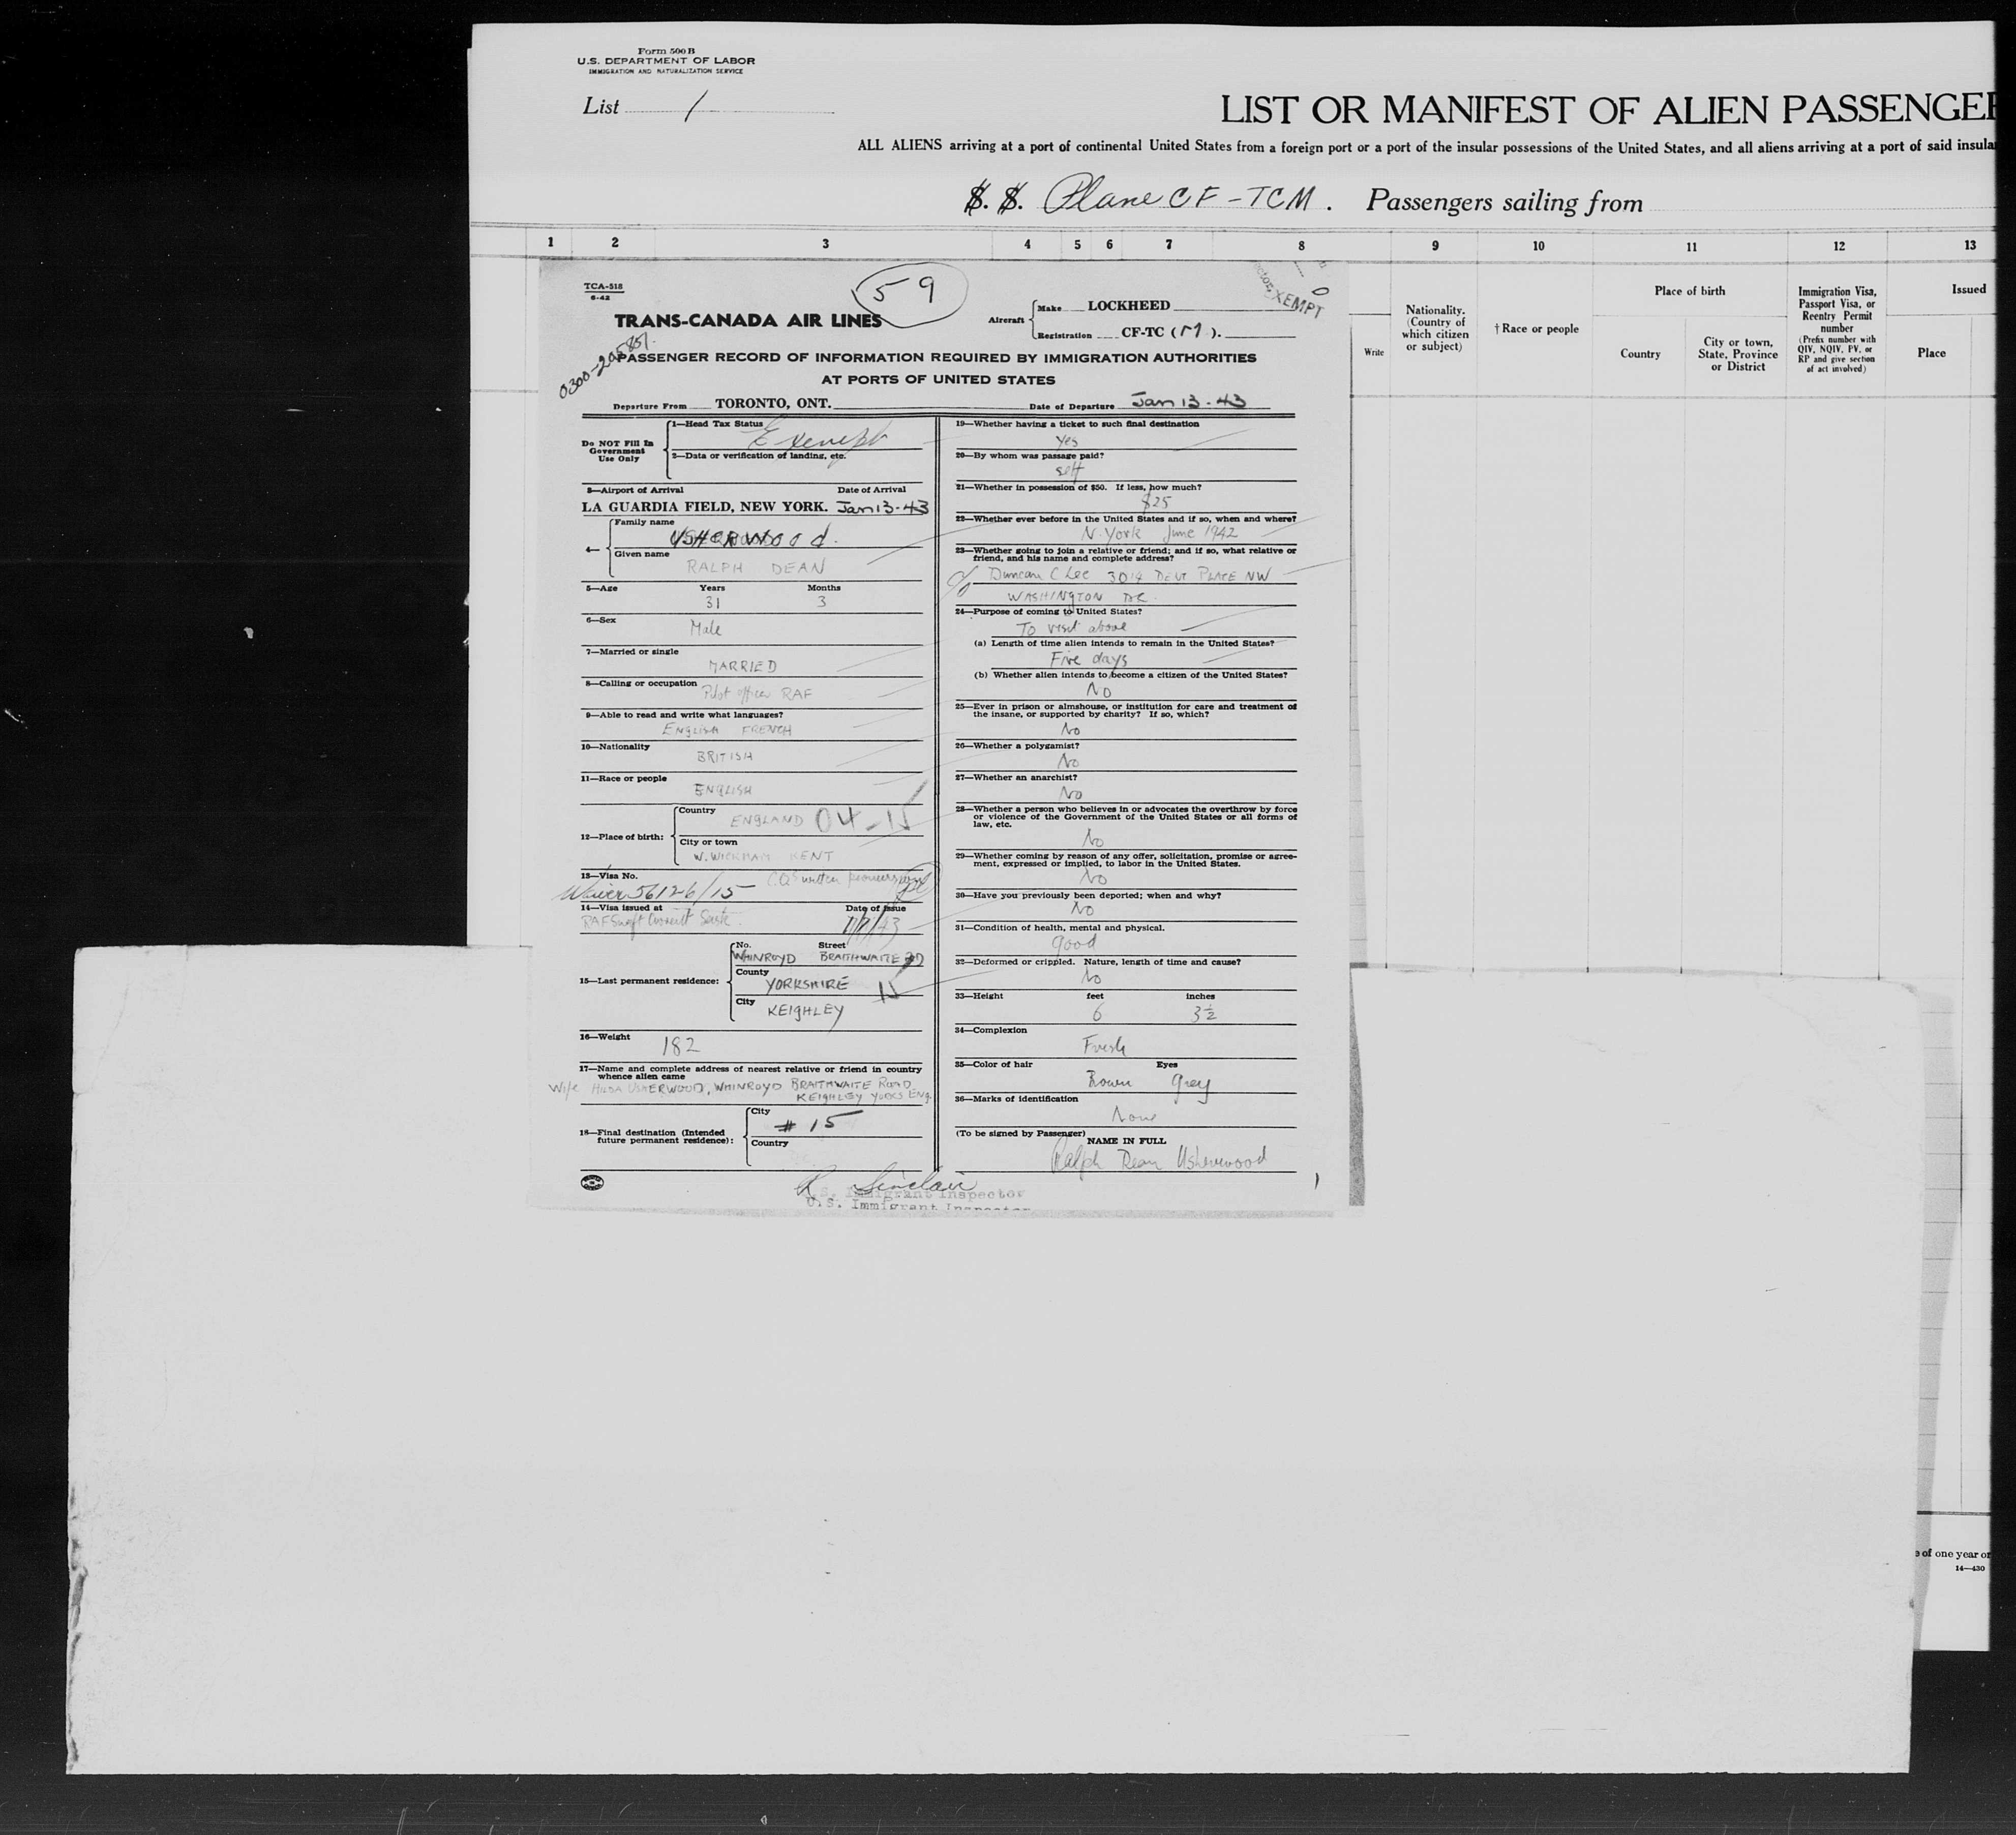 Form 500 B
U.S. DEPARTMENT OF LABOR
IMMIGRATION AND NATURALIZATION SERVICE
List 1
LIST OR MANIFEST OF ALIEN PASSENGER
ALL ALIENS arriving at a port of continental United States from a foreign port or a port of the insular possessions of the United States, and all aliens arriving at a port of said insula
S. S. Plane CF-TCM. Passengers sailing from
1 2 3 4 5 6 7 8 9 10 11 12 13
Write
Nationality. (Country of which citizen or subject)
† Race or people
Place of birth
Country
City or town, State, Province or District
Immigration Visa, Passport Visa, or Reentry Permit number
(Prefix number with QIV, NQIV, PV, or RP and give section of act involved)
Issued
Place
TCA-518
6-42
59
EXEMPT
TRANS-CANADA AIR LINES
Aircraft Make LOCKHEED
Registration CF-TC (M).
PASSENGER RECORD OF INFORMATION REQUIRED BY IMMIGRATION AUTHORITIES
AT PORTS OF UNITED STATES
Departure From TORONTO, ONT. Date of Departure Jan 13-43
Do NOT Fill In Government Use Only
1—Head Tax Status Exempt
2—Data or verification of landing, etc.
3—Airport of Arrival Date of Arrival
LA GUARDIA FIELD, NEW YORK. Jan 13-43
4— Family name
USHERWOOD.
Given name
RALPH DEAN
5—Age Years Months
31 3
6—Sex
Male
7—Married or single
MARRIED
8—Calling or occupation Pilot officer RAF
9—Able to read and write what languages?
ENGLISH FRENCH
10—Nationality
BRITISH
11—Race or people
ENGLISH
12—Place of birth: Country
ENGLAND 04-15
City or town
W. WICKHAM KENT
13—Visa No.
Waiver 56126/15
14—Visa issued at Date of Issue
RAF Swift Current Sask.
15—Last permanent residence: No. Street
WHINROYD BRAITHWAITE RD
County
YORKSHIRE 15
City
KEIGHLEY
16—Weight
182
17—Name and complete address of nearest relative or friend in country
whence alien came
Wife HILDA USHERWOOD, WHINROYD BRAITHWAITE ROAD
KEIGHLEY YORKS ENG.
18—Final destination (Intended future permanent residence): City
# 15
Country
19—Whether having a ticket to such final destination
Yes
20—By whom was passage paid?
self
21—Whether in possession of $50. If less, how much?
$25
22—Whether ever before in the United States and if so, when and where?
N. York June 1942
23—Whether going to join a relative or friend; and if so, what relative or
friend, and his name and complete address?
c/o Duncan C Lee 3014 DENT PLACE NW
WASHINGTON DC.
24—Purpose of coming to United States?
To visit above
(a) Length of time alien intends to remain in the United States?
Five days
(b) Whether alien intends to become a citizen of the United States?
No
25—Ever in prison or almshouse, or institution for care and treatment of
the insane, or supported by charity? If so, which?
No
26—Whether a polygamist?
No
27—Whether an anarchist?
No
28—Whether a person who believes in or advocates the overthrow by force
or violence of the Government of the United States or all forms of
law, etc.
No
29—Whether coming by reason of any offer, solicitation, promise or agree-
ment, expressed or implied, to labor in the United States.
No
30—Have you previously been deported; when and why?
No
31—Condition of health, mental and physical.
good
32—Deformed or crippled. Nature, length of time and cause?
No
33—Height feet inches
6 3½
34—Complexion
Fresh
35—Color of hair Eyes
Brown Grey
36—Marks of identification
None
(To be signed by Passenger)
NAME IN FULL
Ralph Dean Usherwood
R Sinclair
U.S. Immigrant Inspector
U.S. Immigrant Inspector
1
e of one year or
14—430